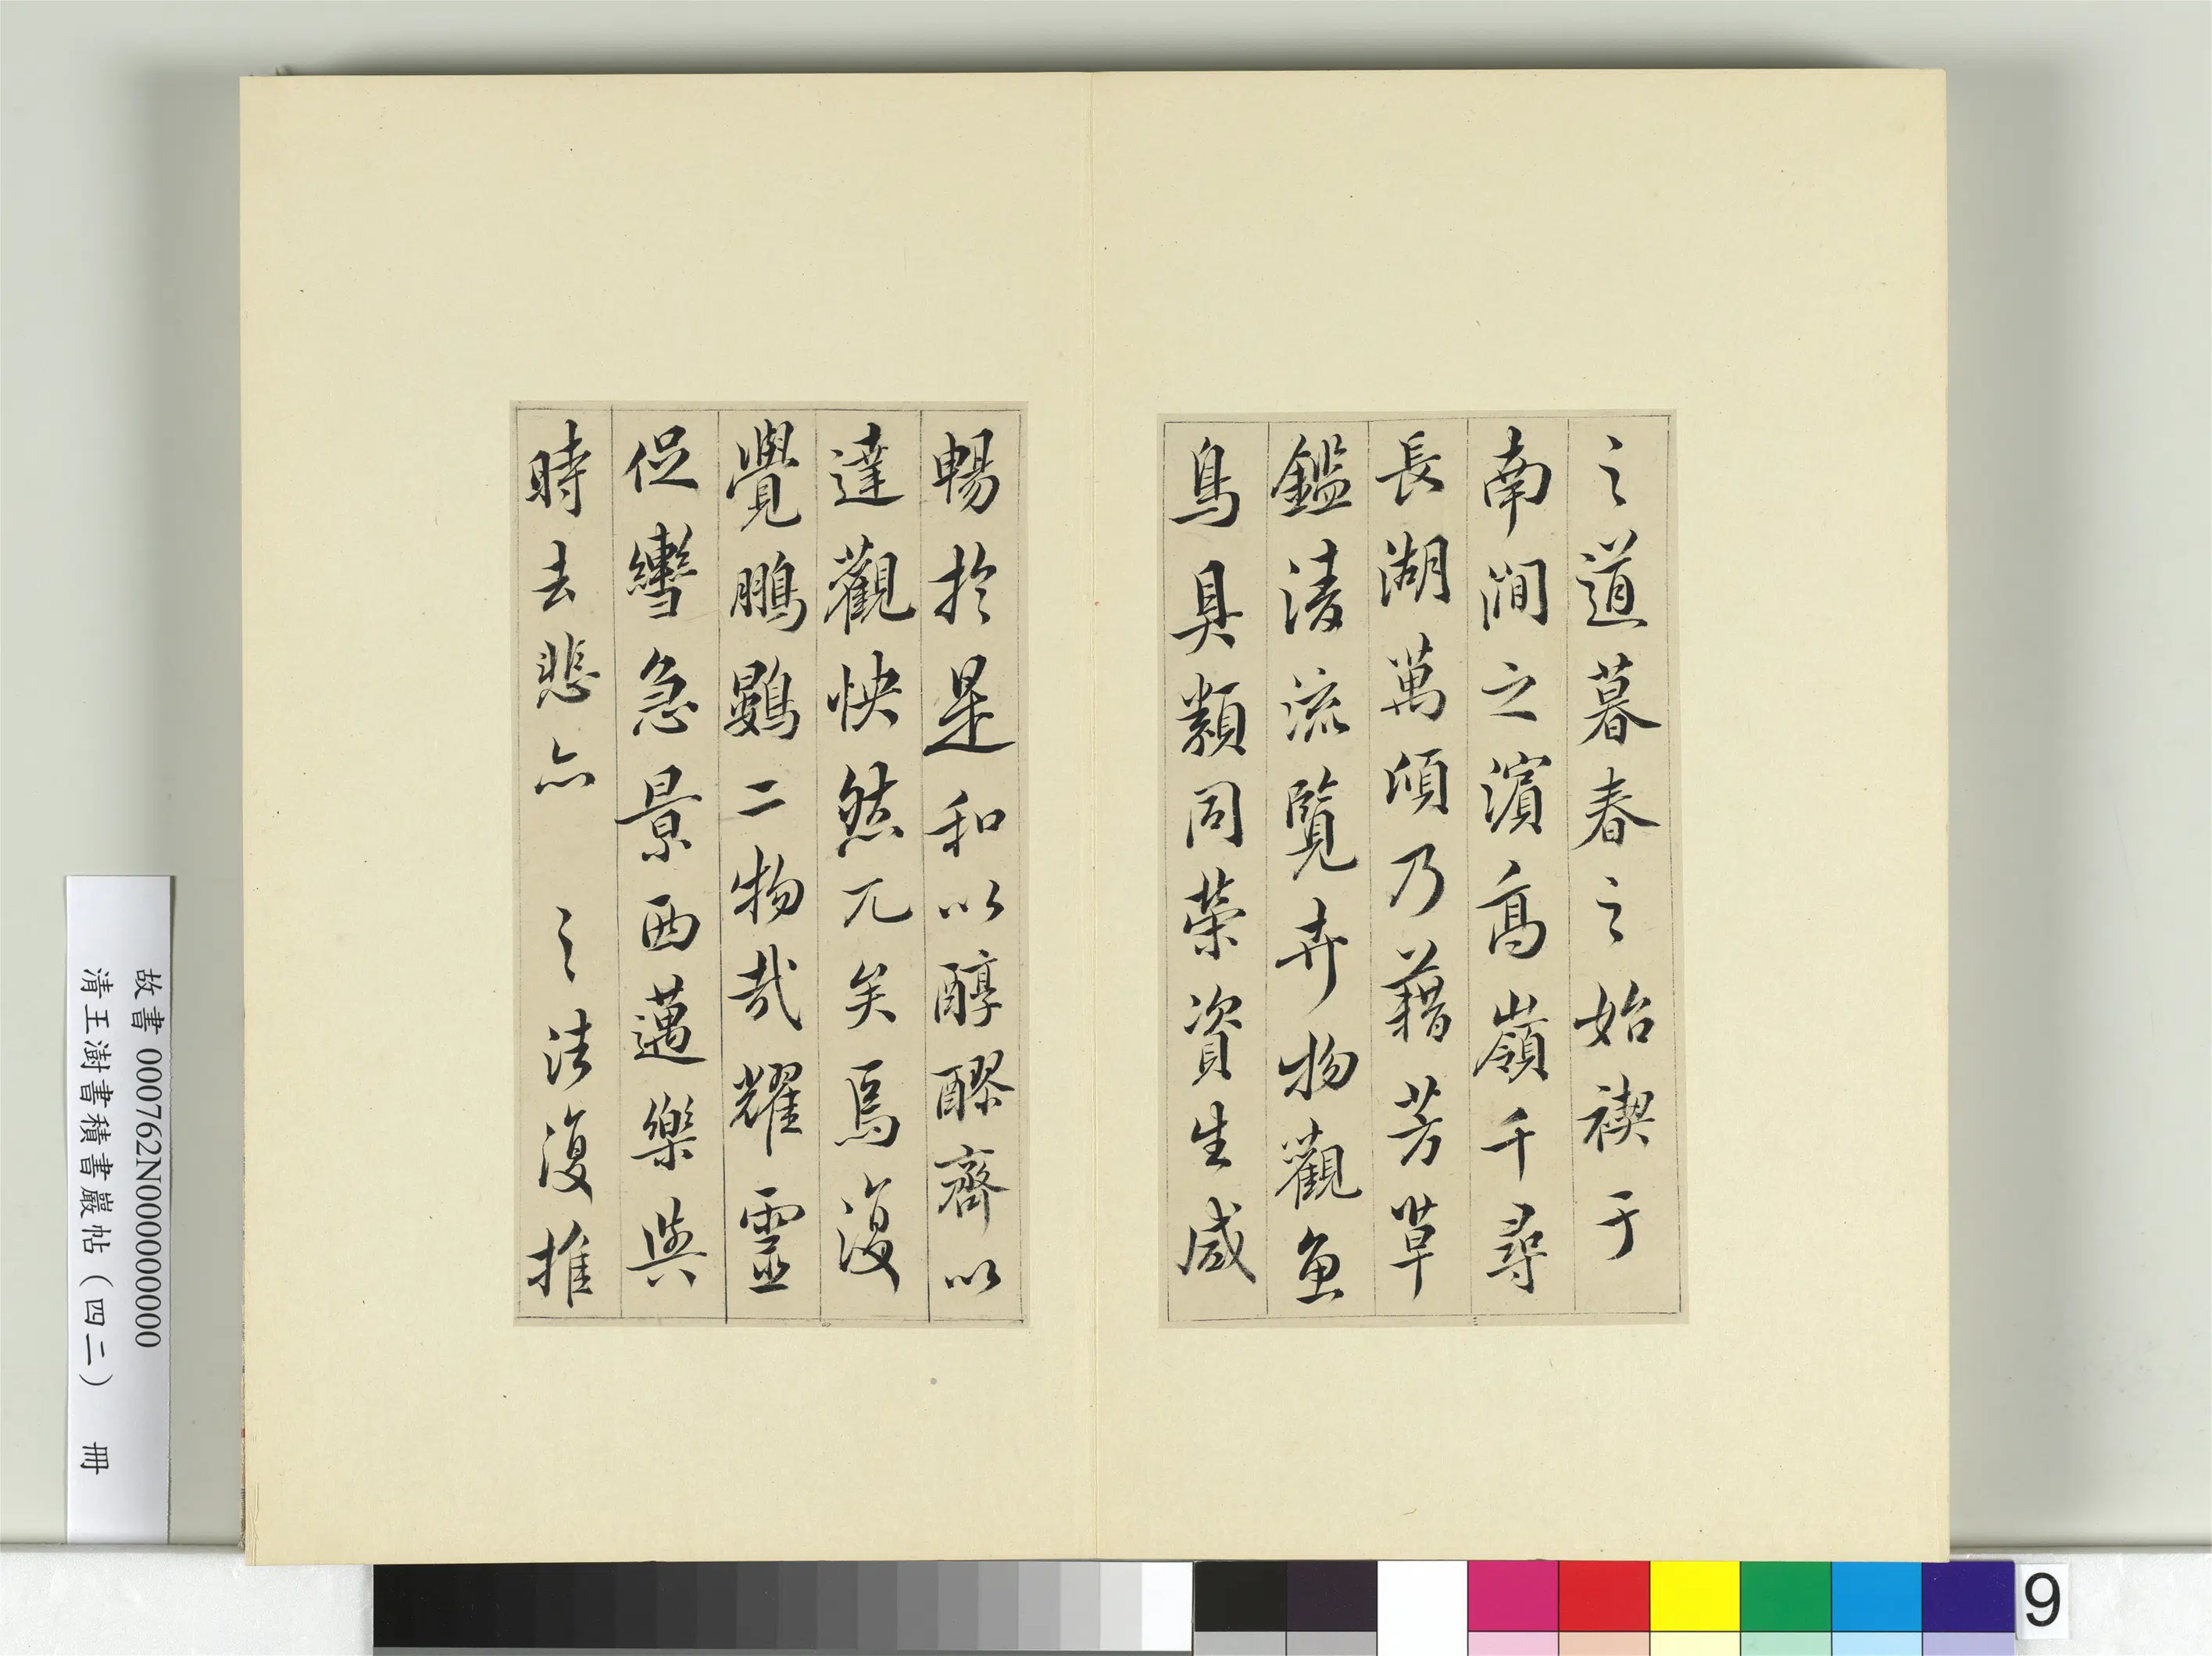 之道暮春之始禊于
南澗之濱高嶺千尋
長湖萬頃乃藉芳草
鑑清流覽卉物觀魚
鳥具類同榮資生咸
暢於是和以醇醪齊以
達觀快然兀矣焉復
覺鵬鷃二物哉耀靈
促轡急景西邁樂與
時去悲亦 之往復推
故書 000762N000000000
清王澍書積書巖帖(四二) 冊
9